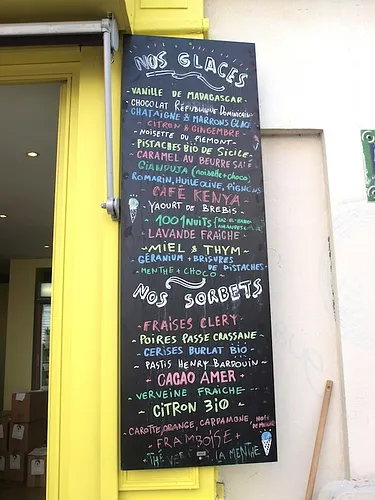 NOS GLACES
VANILLE DE MADAGASCAR
CHOCOLAT RÉPUBLIQUE DOMINICAIN
CHATAIGNE & MARRONS
CITRON & GINGEMBRE
- NOISETTE DU PIEMONT -
- PISTACHES BIO DE SICILE -
CARAMEL AU BEURRE SALÉ
GIANDUJA (noisette + choco)
ROMARIN, HUILE OLIVE, PIGNONS
CAFÉ KENYA -
YAOURT DE BREBIS -
- 1001 NUITS
LAVANDE FRAÎCHE -
- MIEL & THYM -
GÉRANIUM + BRISURES
DE PISTACHES -
- MENTHE + CHOCO -
NOS SORBETS
- FRAISES CLERY -
- POIRES PASSE CRASSANE -
- CERISES BURLAT BIO -
- PASTIS HENRY BARDOUIN -
- CACAO AMER -
- VERVEINE FRAICHE -
- CITRON BIO -
- CAROTTE, ORANGE, CARDAMOME, NOIX
- FRAMBOISE +
THÉ VERT LA MENTHE